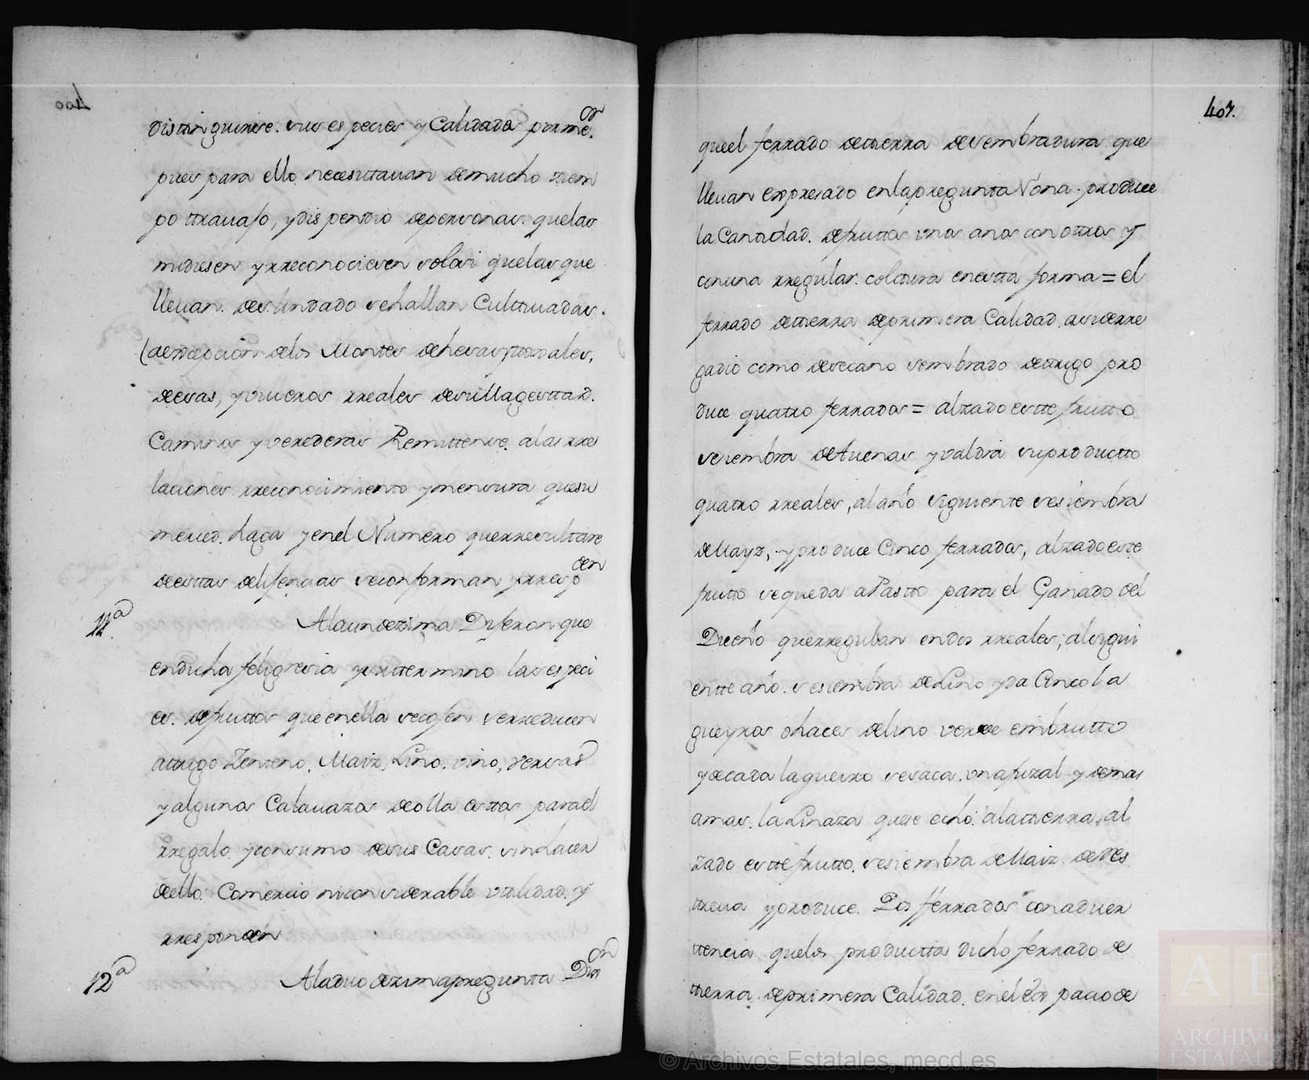 400
distinguirse. sus especies y Calidade pormor.
pues para ello necesittauan demucho tiem
po ttrauajo, ydispendio depersonas. quelas
midiesen yrreconociesen solosi quelasque
lleuan. deslindado sehallan Culttiuadas.
(aexcepcion delos Monttes dehesas,
deesas, y rreales desuillage
Caminos yveredas Remittense. alas rre
laciones rreconocimiento ymensura quesu
merced. haga yenel Numero querresulttare
deesttas delijencias seconforman yrrespo
den
11ª Alaundezima Dijeron que
endicha feligresia ysutermino las especi
es. defruttos queenella secojen serreducen
attrigo Zenteno, Maiz, Lino, vino, yervas
yalgunas Calauazas deolla esttas parael
rregalo yconsumo desus Casas. sinhacer
dello. Comercio niconsiderable utilidad. y
rresponden
12ª Aladuodezimapregunta Dijon
401.
queel ferrado detierra desembradura que
lleuan expresado enlapregunta Nona. produce
la Canttidad. defruttos unos anos conottros y
conuna rregular. colttura enestta forma = el
ferrado dettierra deprimera Calidad, asiderre
gadio como desecano sembrado dettrigo pro
duce quatro ferrados = alzado estte frutto
sesiembra deAuenas yvaldra suproductto
quatro rreales, alaño siguiente sesiembra
deMayz, yproduce Cinco ferrados, alzado este
frutto sequeda aPastto para el Ganado del
Dueño querregulan endos rreales, alsigui
entte año. sesiembra deLino yda Cinco la
gueyros ohaces delino verde embrutto
ydecada lagueiro sesaca. unafizal y demas
amas. la Linaza quese echó. alattierra, al
zado esttefrutto. sesiembra deMaiz. de
ttreua yproduce. Dos fferrados conaduer
ttencia quelos productta dicho ferrado de
ttierra. deprimera Calidad. enel espaciode
© Archivos Estatales, mecd.es
AE
ARCHIVO
ESTATAL